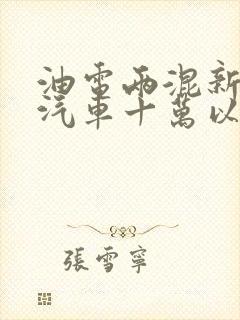 油電兩混新
汽車十萬以
張雪寧